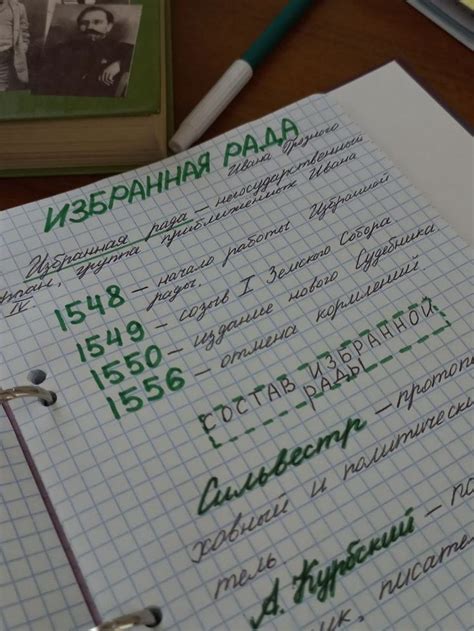 ИЗБРАННАЯ РАДА
Ивана Грозного
Избранная рада – негосударственный
орган, группа приближённых Ивана
IV.
1548 – начало работы Избранной
рады.
1549 – созыв I Земского Собора
1550 – издание нового Судебника.
1556 – отмена кормлений.
СОСТАВ ИЗБРАННОЙ
РАДЫ
Сильвестр – протопо
ховный и политически
тель.
А. Курбский – по
ик, писател